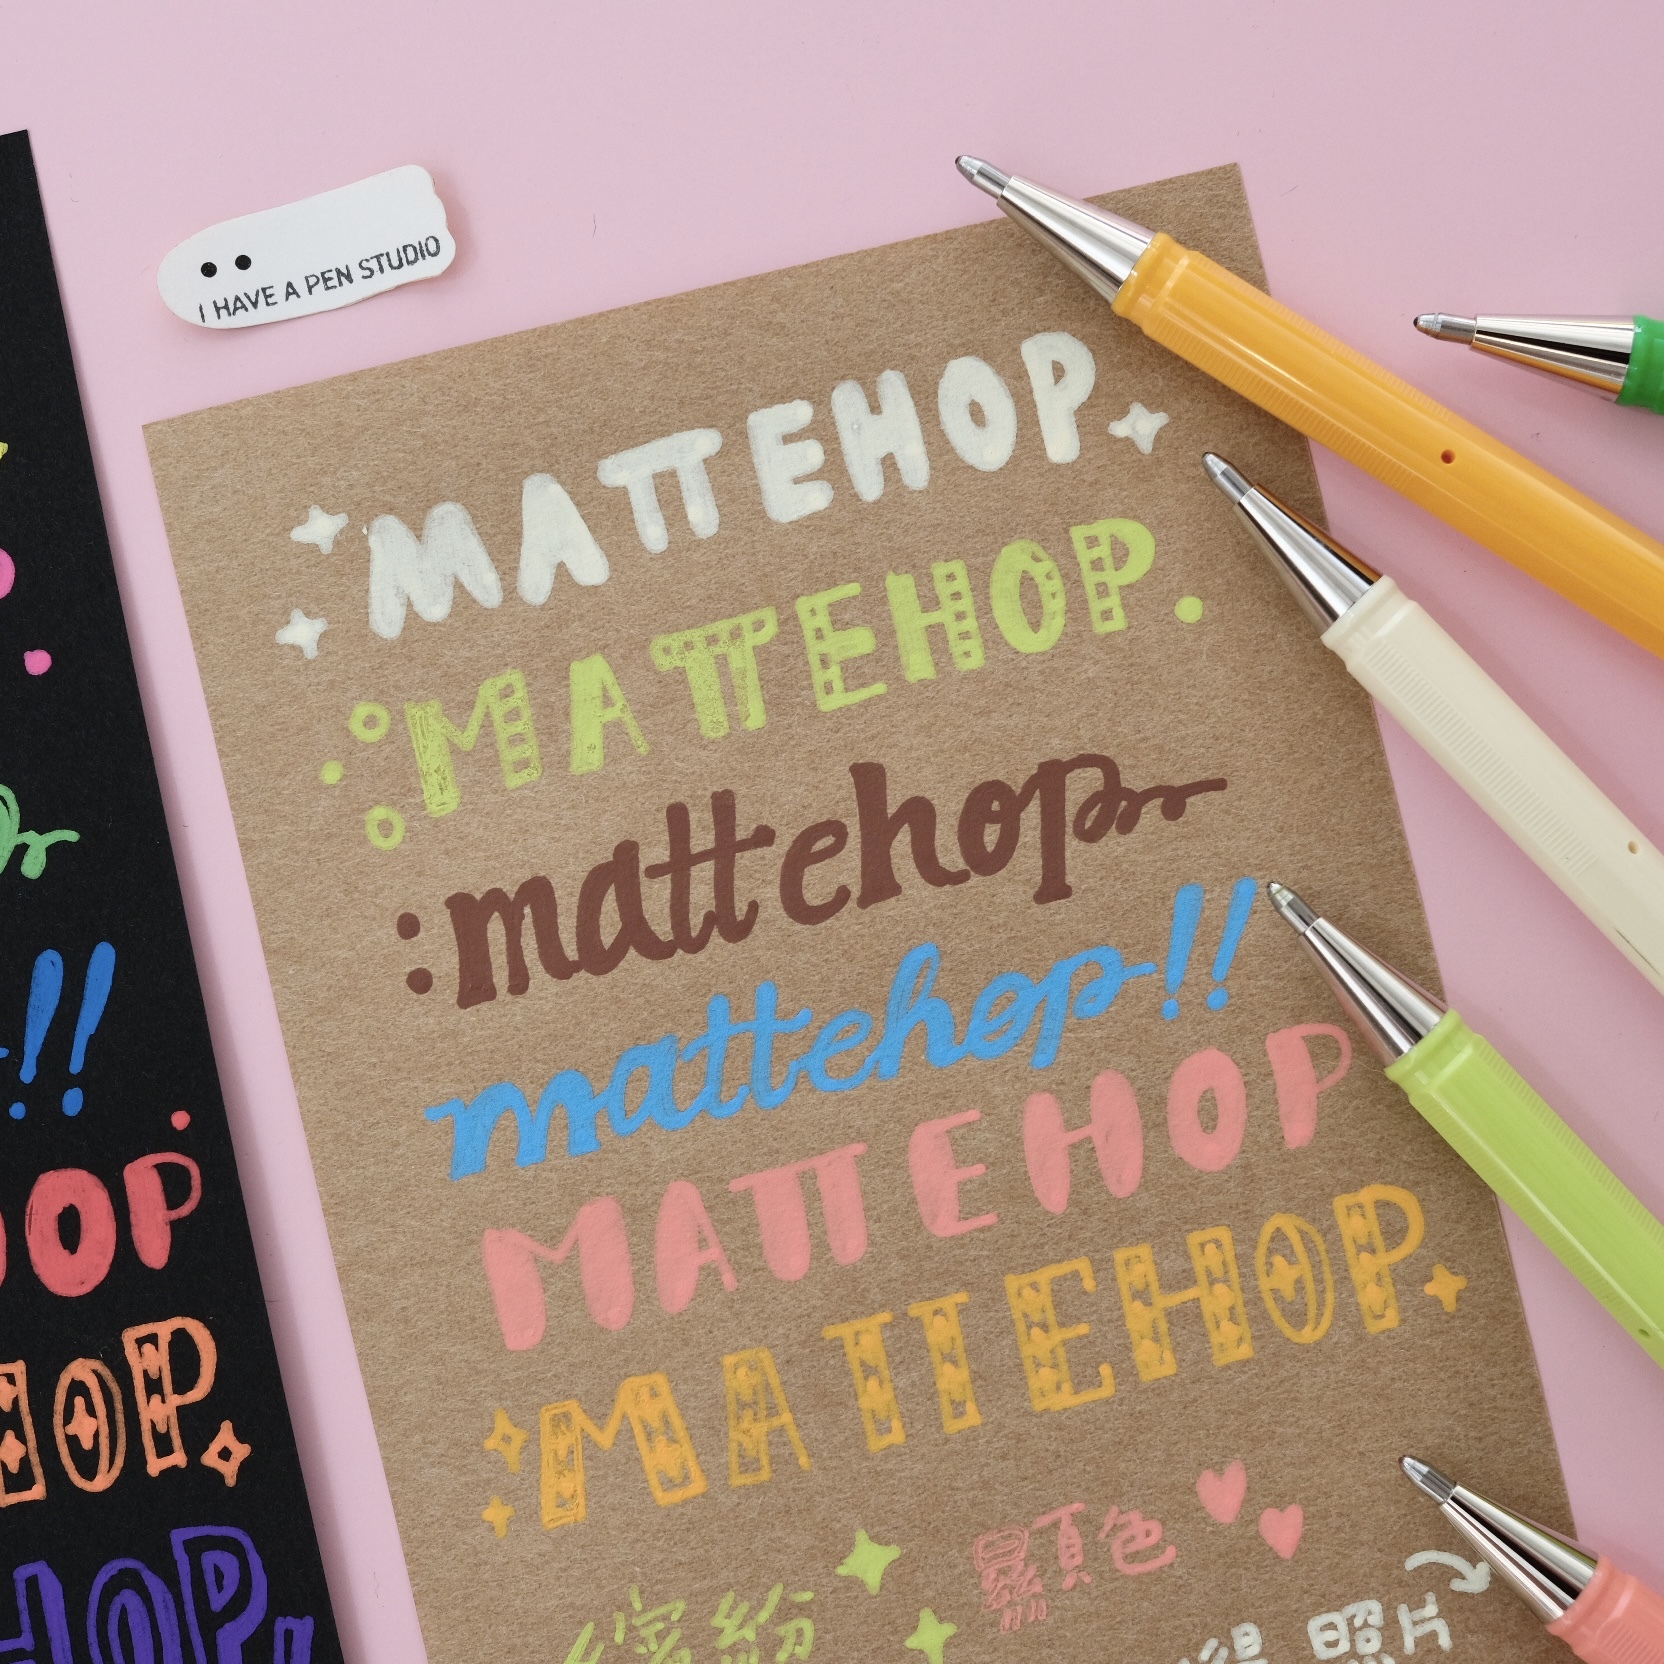 I HAVE A PEN STUDIO
MATTEHOP
MATTEHOP
mattehop
mattehop!!
MATTEHOP
MATTEHOP
!!
OP
HOP
HOP
顯色
繽紛
照片